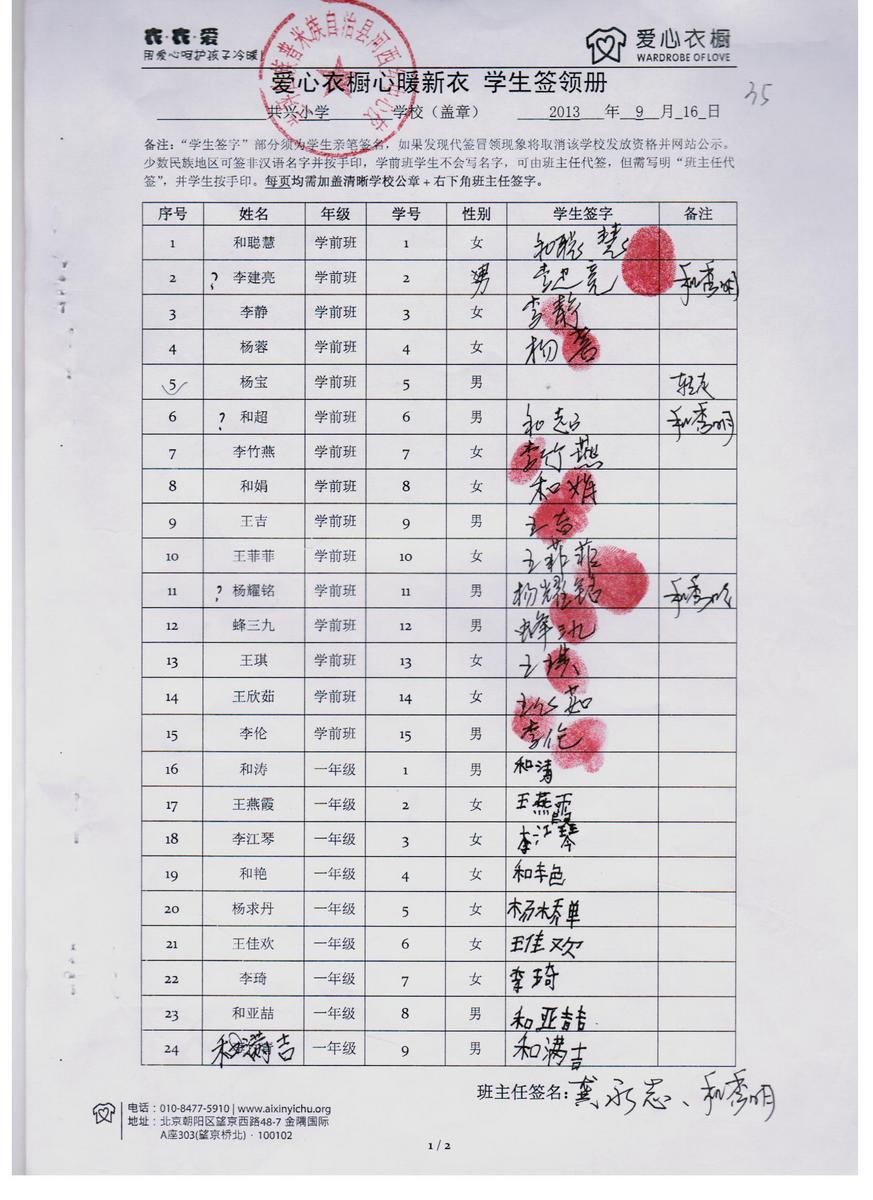 衣·衣·爱
用爱心呵护孩子冷暖!
爱心衣橱
WARDROBE OF LOVE
爱心衣橱心暖新衣 学生签领册
35
共兴小学 学校（盖章） 2013 年 9 月 16 日
备注：“学生签字”部分须为学生亲笔签名，如果发现代签冒领现象将取消该学校发放资格并网站公示。
少数民族地区可签非汉语名字并按手印，学前班学生不会写名字，可由班主任代签，但需写明“班主任代
签”，并学生按手印。每页均需加盖清晰学校公章+右下角班主任签字。
序号 姓名 年级 学号 性别 学生签字 备注
1 和聪慧 学前班 1 女 和聪慧
2 ? 李建亮 学前班 2 男 李建亮 和秀明
3 李静 学前班 3 女 李静
4 杨蓉 学前班 4 女 杨蓉
5 杨宝 学前班 5 男
6 ? 和超 学前班 6 男 和超 和秀明
7 李竹燕 学前班 7 女 李竹燕
8 和娟 学前班 8 女 和娟
9 王吉 学前班 9 男 王吉
10 王菲菲 学前班 10 女 王菲菲
11 ? 杨耀铭 学前班 11 男 杨耀铭 和秀明
12 蜂三九 学前班 12 男 蜂三九
13 王琪 学前班 13 女 王琪
14 王欣茹 学前班 14 女 王心茹
15 李伦 学前班 15 男 李伦
16 和涛 一年级 1 男 和涛
17 王燕霞 一年级 2 女 王燕霞
18 李江琴 一年级 3 女 李江琴
19 和艳 一年级 4 女 和艳
20 杨求丹 一年级 5 女
21 王佳欢 一年级 6 女 王佳欢
22 李琦 一年级 7 女 李琦
23 和亚喆 一年级 8 男 和亚喆
24 和满吉 一年级 9 男 和满吉
班主任签名：龚永志、和秀明
电话：010-8477-5910 | www.aixinyichu.org
地址：北京朝阳区望京西路48-7 金隅国际
A座303(望京桥北)·100102
1 / 2